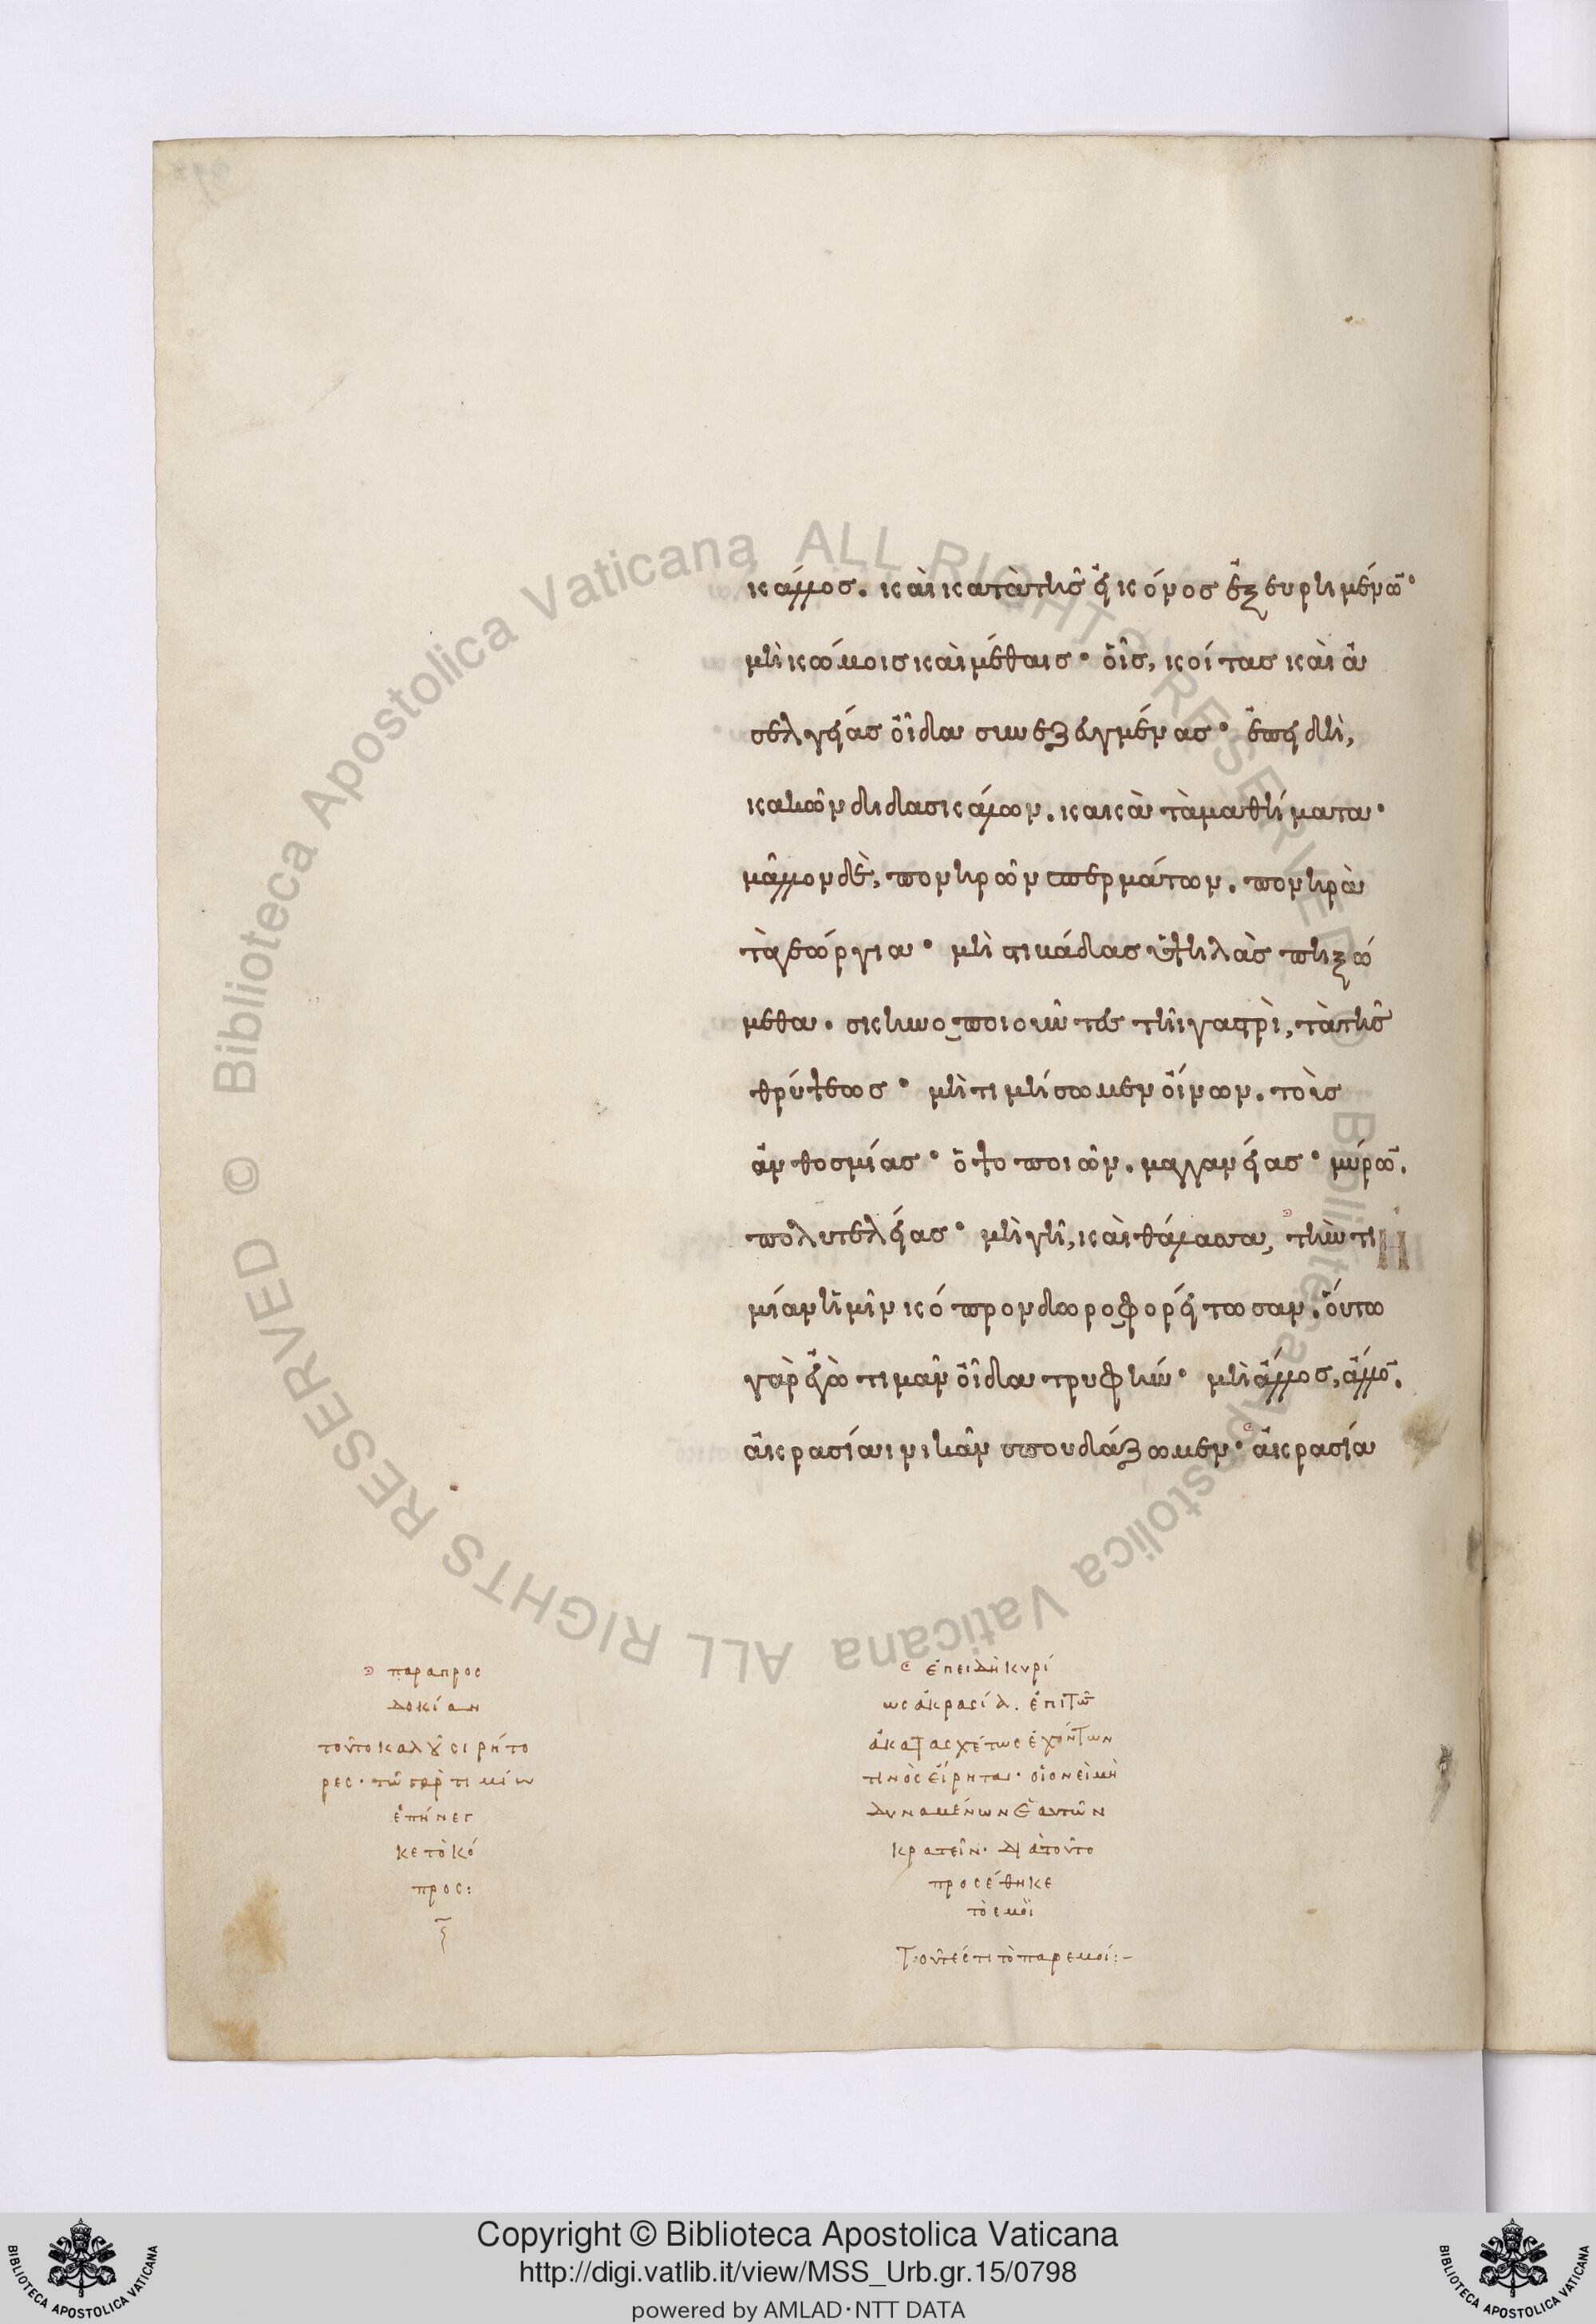 κάλλος. καὶ κατὰ τῆς εἰκόνος ἐξευρημένων·
μὴ κώμοις καὶ μέθαις· οἷς, κοίτας καὶ ἀ
σελγείας οἶδα συνεζευγμένας· ἐπειδὴ,
κακῶν διδασκάλων. κακὰ τὰ μαθήματα·
μᾶλλον δὲ, πονηρῶν σπερμάτων. πονηρὰ
τὰ γεώργια· μὴ στιβάδας ὑψηλὰς πηξώ
μεθα. σκηνοποιοῦντες τῆι γαστρὶ, τὰ τῆς
θρύψεως· μὴ τιμήσωμεν οἴνων. τοὺς
ἀνθοσμίας· ὀψοποιῶν. μαγγανείας· μύρων.
πολυτελείας· μὴ γῆ, καὶ θάλασσα, τὴν τι
μίαν ἡμῖν κόπρον δωροφορείτωσαν. οὕτω
γὰρ ἐγὼ τιμᾶν οἶδα τρυφήν· μὴ ἄλλος, ἄλλον.
ἀκρασίαι νικᾶν σπουδάζωμεν· ἀκρασία
παραπροσ
δοκίαν
τοῦτο καλοῦσι ρήτο
ρες· τῶ γὰρ τιμίω
ἐπήνεγ
κε τὸ κό
προς:
ἐπειδὴ κυρί
ως ἀκρασία. ἐπὶ τῶν
ἀκατασχέτως ἐχόντων
τινὸς εἴρηται· οἱονεὶ μὴ
δυναμένων ἑαυτῶν
κρατεῖν· διὰ τοῦτο
προσέθηκε
τὸ ἐμοὶ
τουτέστι τὸ παρ ἐμοί:–
Copyright © Biblioteca Apostolica Vaticana
http://digi.vatlib.it/view/MSS_Urb.gr.15/0798
powered by AMLAD·NTT DATA
BIBLIOTECA APOSTOLICA VATICANA
BIBLIOTECA APOSTOLICA VATICANA
© Biblioteca Apostolica Vaticana ALL RIGHTS RESERVED
© Biblioteca Apostolica Vaticana ALL RIGHTS RESERVED